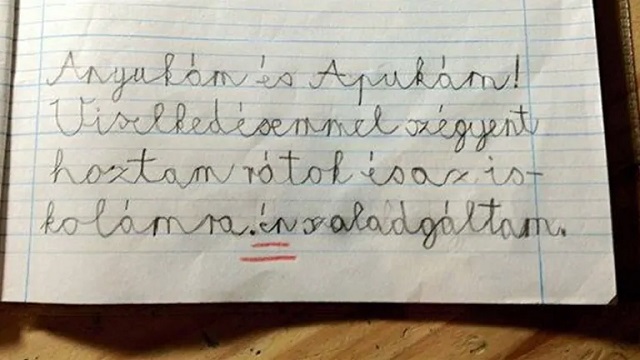 Anyukám és Apukám!
Viselkedésemmel szégyent
hoztam rátok ésaz is-
kolámra.én szaladgáltam.